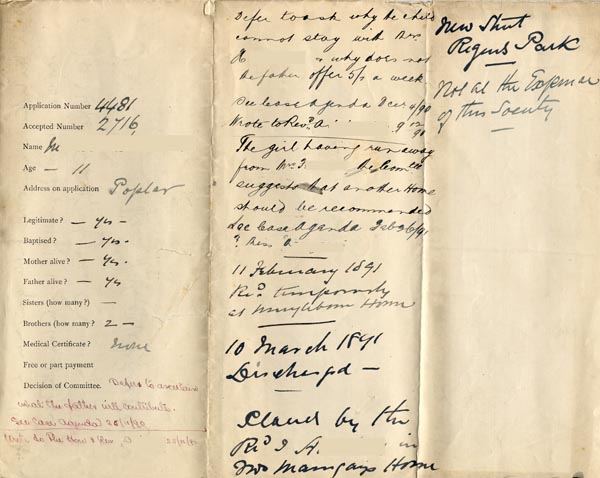 Application Number 4481
Accepted Number 2716
Name M
Age — 11
Address on application Poplar
Legitimate? — Yes —
Baptised? — Yes —
Mother alive? — Yes
Father alive? — Yes
Sisters (how many?) —
Brothers (how many? 2 —
Medical Certificate? None
Free or part payment
Decision of Committee. Defer to ascertain
what the father will contribute.
See Case Agenda 25/11/90
Write to The Hon & Rev. A 25/11/90
Defer to ask why the child
cannot stay with Mrs
H & why does not
the father offer 5/s a week
See Case Agenda Decr 9/90
Wrote to Revd. A. 9 12 90
The girl having run away
from Mrs J. the Comtee
suggests that another Home
should be recommended
See Case Agenda Feb 26/91
? Miss A.
11 February 1891
Recd. temporarily
at Marylebone Home
10 March 1891
Discharged —
Placed by the
Revd J. A. in
Mrs Home
New Street
Regents Park
Not at the Expense
of this Society